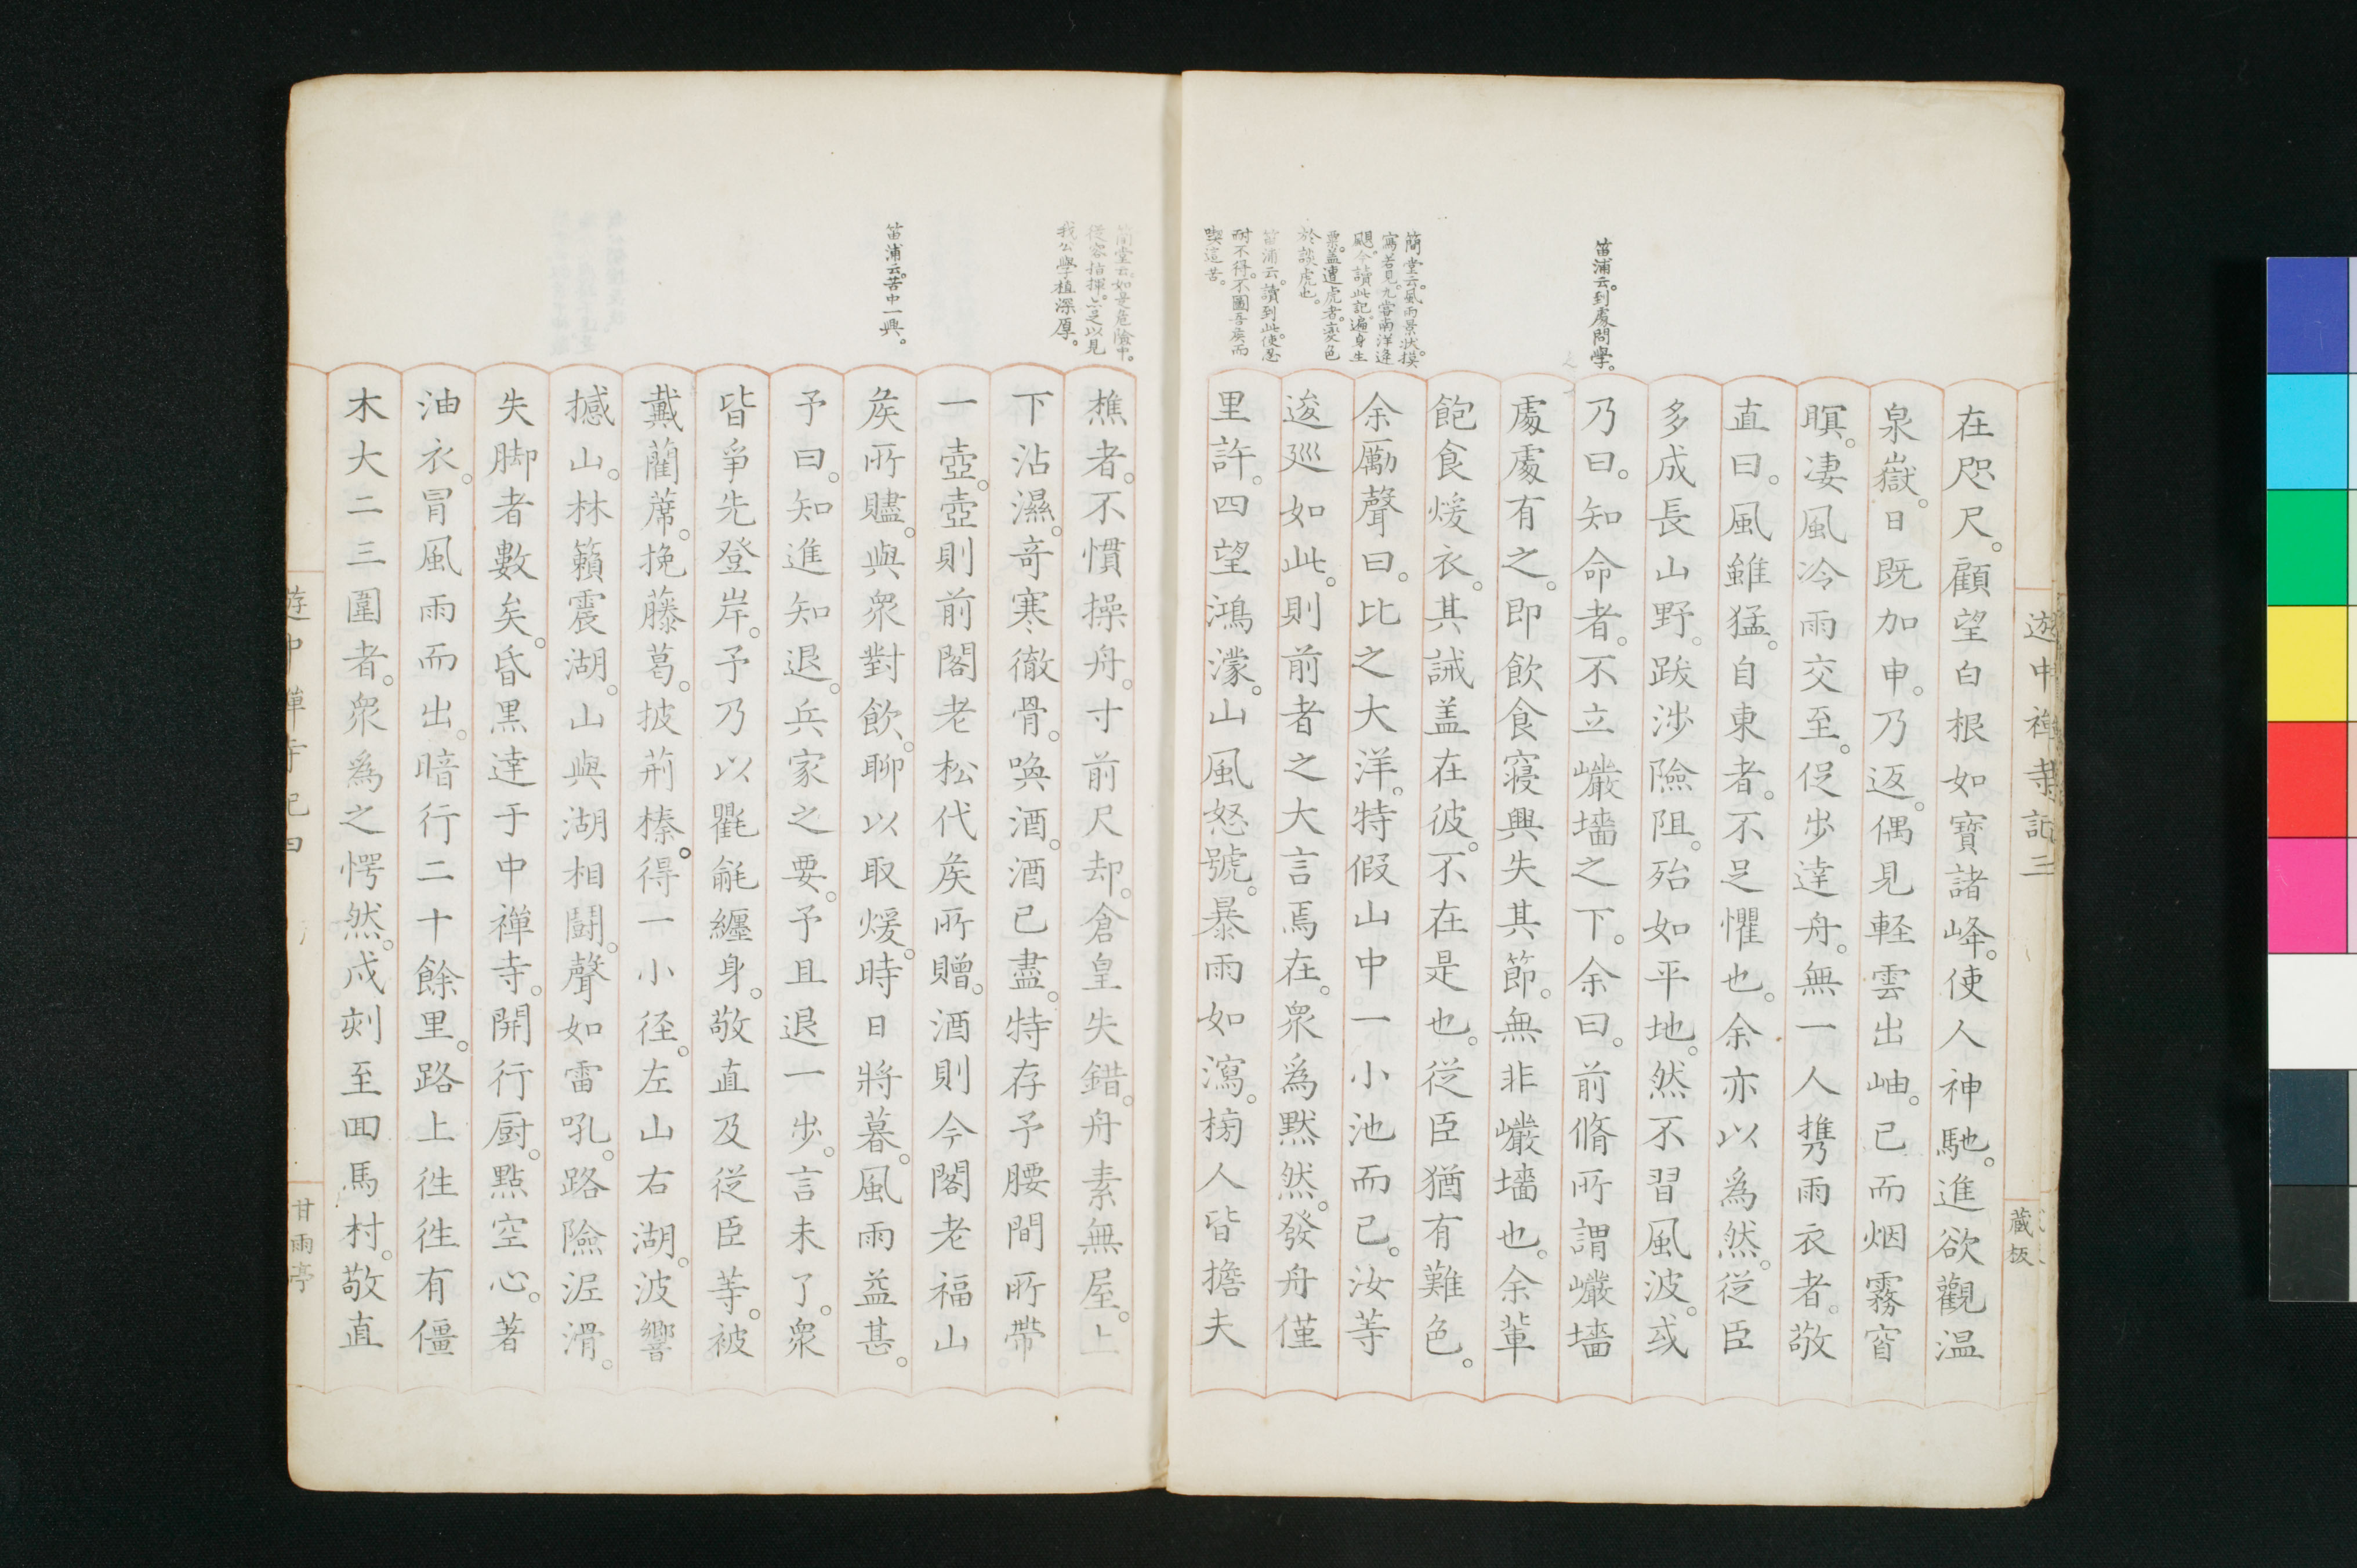 遊中禅寺記三
蔵板
笛浦云。到處問學。
簡堂云。風雨景状。摸
寫若見。九嘗南洋逢
颶。今讀此記。遍身生
粟。盖遭虎者。変色
於談虎也。
笛浦云。讀到此。使忍
耐不得。不圖吾矦而
喫這苦。
在咫尺。顧望白根如寶諸峰。使人神馳。進欲觀温
泉嶽。日既加申。乃返。偶見軽雲出岫。已而烟霧窅
暝。凄風冷雨交至。促歩達舟。無一人携雨衣者。敬
直曰。風雖猛。自東者。不足懼也。余亦以爲然。從臣
多成長山野。跋渉險阻。殆如平地。然不習風波。或
乃曰。知命者。不立巖墻之下。余曰。前脩所謂巖墻
處處有之。即飲食寝興失其節。無非巖墻也。余輩
飽食煖衣。其誡盖在彼。不在是也。從臣猶有難色。
余勵聲曰。比之大洋。特假山中一小池而已。汝等
逡巡如此。則前者之大言焉在。衆爲黙然。發舟僅
里許。四望鴻濛。山風怒號。暴雨如瀉。榜人皆擔夫
簡堂云。如是危險中。
從容指揮。亦足以見
我公學植深厚。
笛浦云。苦中一興。
樵者。不慣操舟。寸前尺却。倉皇失錯。舟素無屋。上
下沾濕。奇寒徹骨。喚酒。酒已盡。特存予腰間所帶
一壺。壺則前閣老松代矦所贈。酒則今閣老福山
矦所贐。與衆對飲。聊以取煖。時日將暮。風雨益甚。
予曰。知進知退。兵家之要。予且退一歩。言未了。衆
皆爭先登岸。予乃以氍毹纒身。敬直及從臣等。被
戴藺蓆。挽藤葛。披荊榛。得一小径。左山右湖。波響
撼山。林籟震湖。山與湖相鬪。聲如雷吼。路險泥滑。
失脚者數矣。昏黒達于中禅寺。開行厨。點空心。著
油衣。冒風雨而出。暗行二十餘里。路上往往有僵
木大二三圍者。衆爲之愕然。戍刻至回馬村。敬直
遊中禅寺記四
甘雨亭